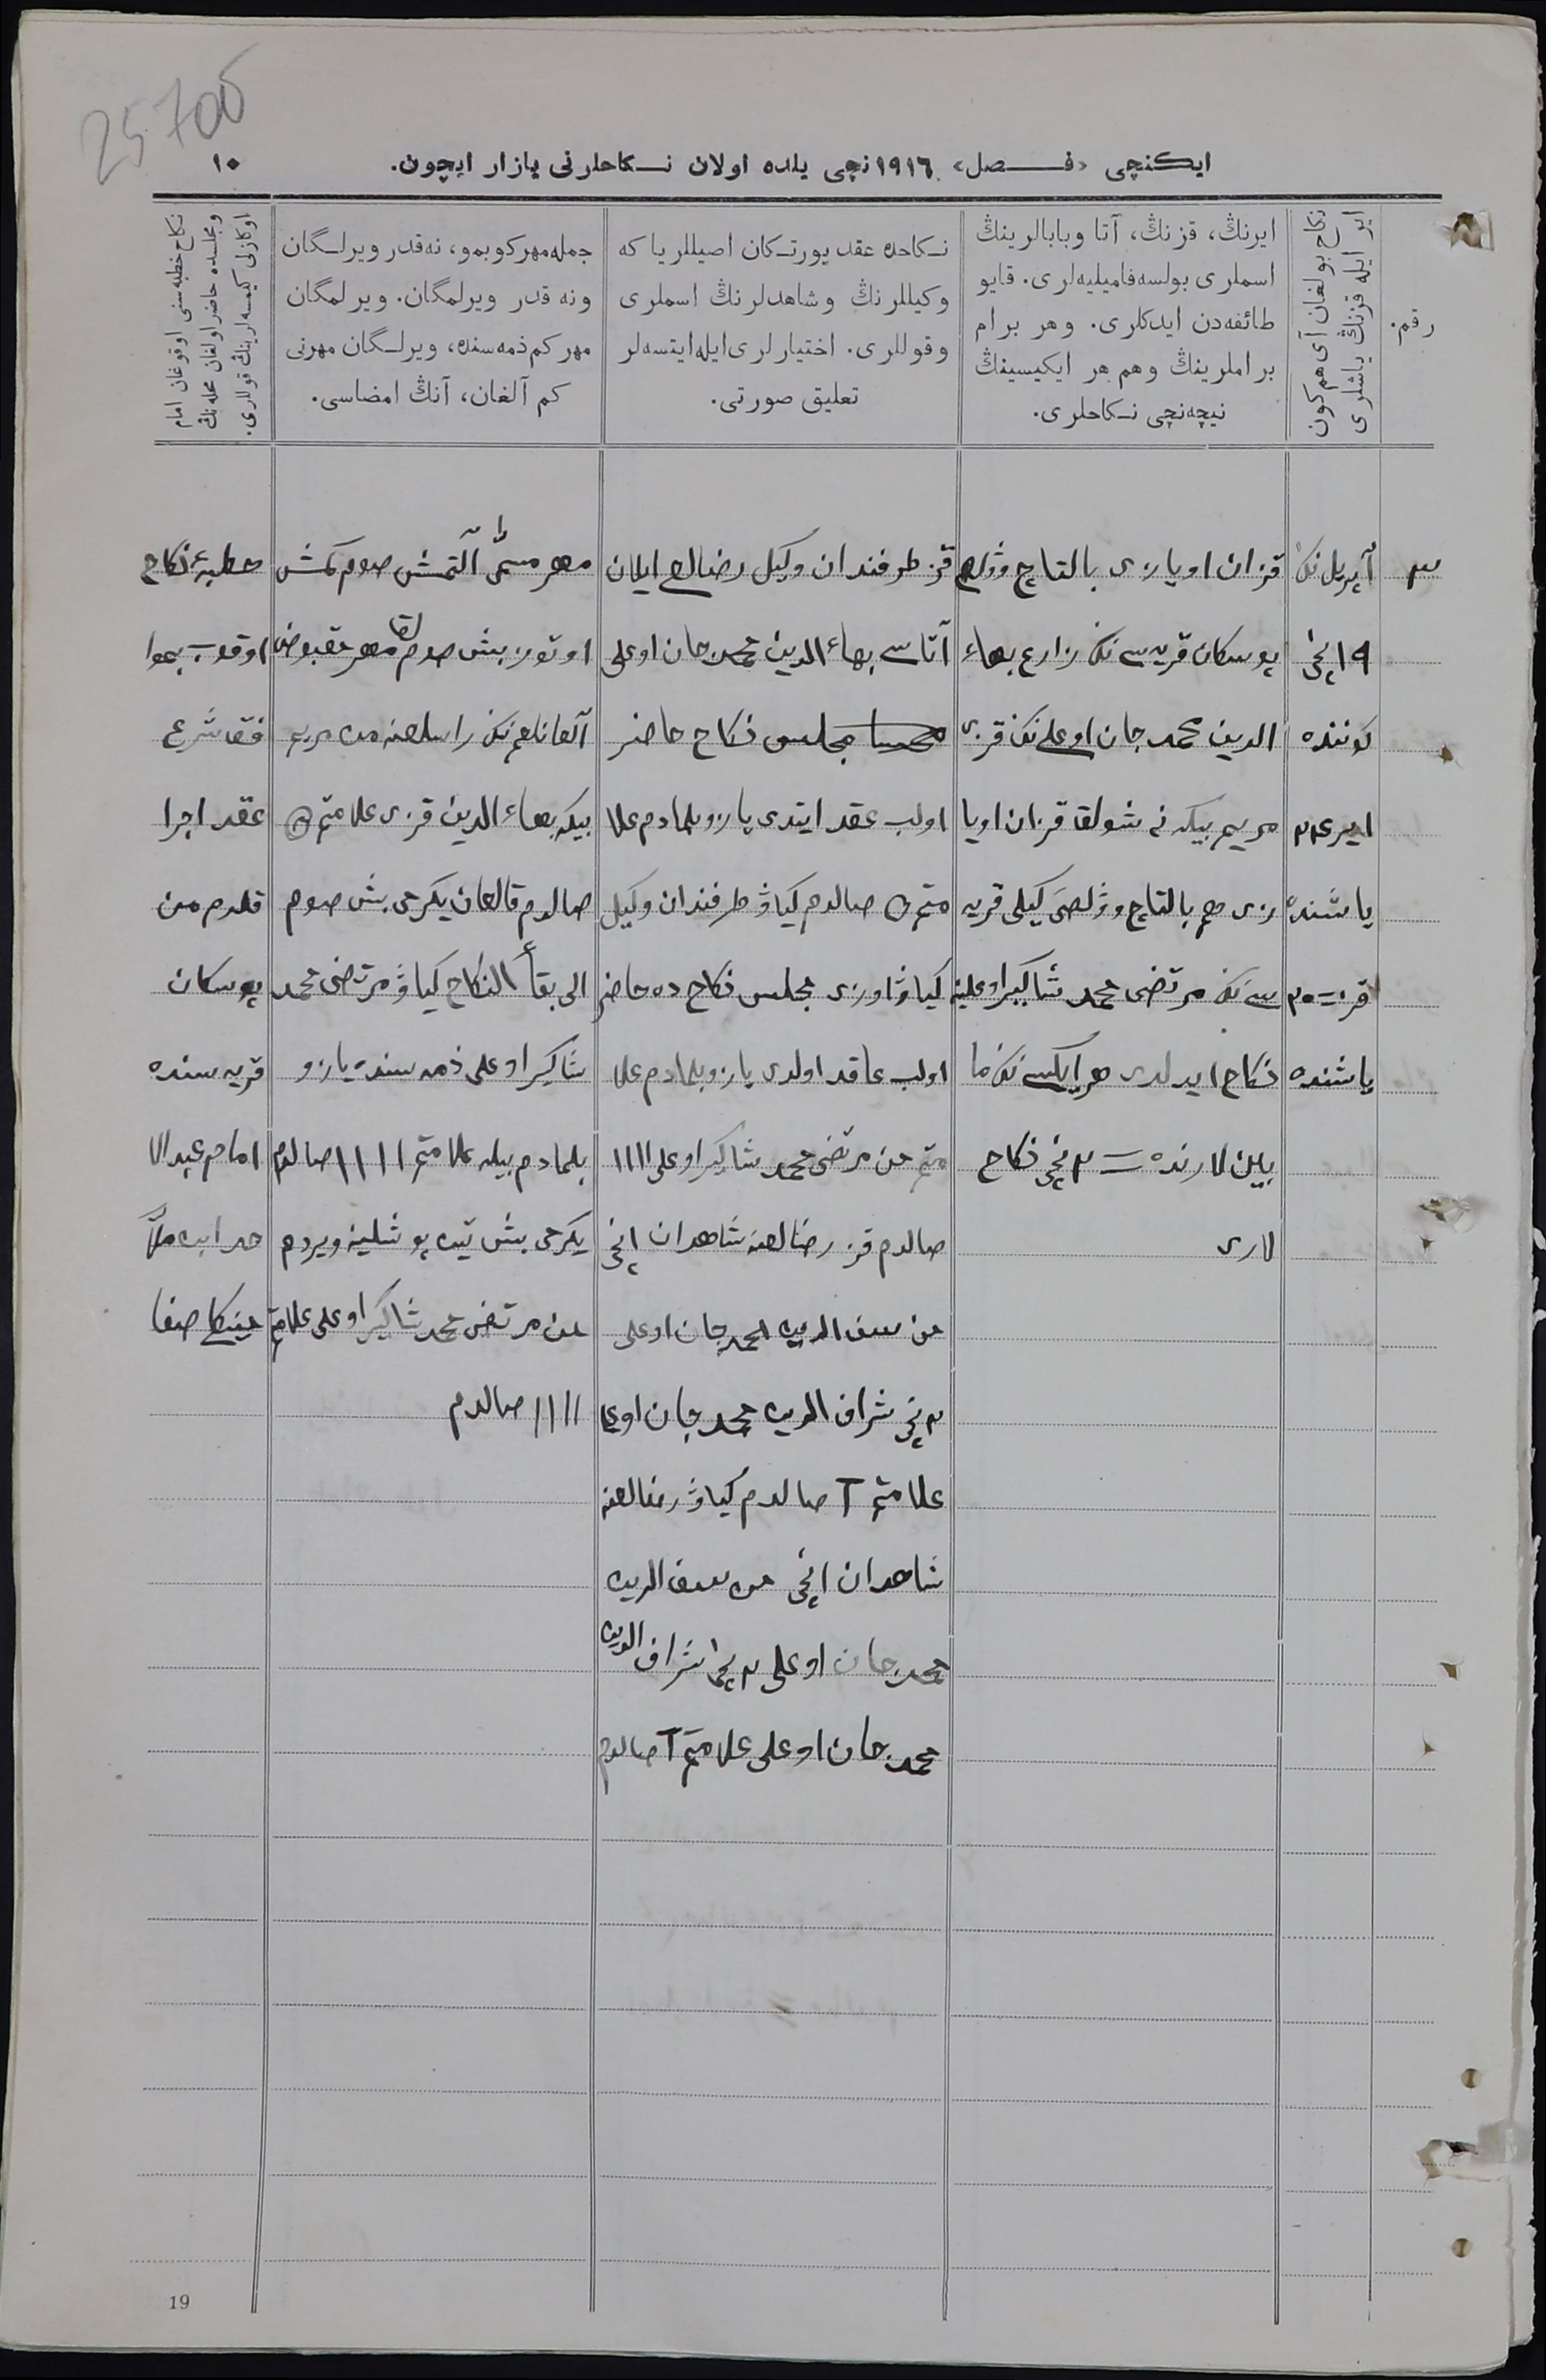 25700
ایکنچی «فصل» ۱۹۱٦ نچی یلده اولان نکاحلرنی یازار ایچون.
۱۰
رقم.
ایر ایله قزنڭ یاشلری
نکاح بولغان آی هم کون
ایرنڭ، قزنڭ، آتا وبابالرینڭ
اسملری بولسه فامیلیه‌لری. قایو
طائفه‌دن ایدکلری. وهر برام
براملرینڭ وهم هر ایکیسینڭ
نیچه‌نچی نکاحلری.
نکاحده عقد یورتکان اصیللر یا که
وکیللرنڭ وشاهدلرنڭ اسملری
وقوللری. اختیارلری ایله ایتسه‌لر
تعلیق صورتی.
جمله مهر کوبمو، نه‌قدر ویرلگان
ونه قدر ویرلمگان. ویرلمگان
مهر کم ذمه‌سنده، ویرلگان مهرنی
کم آلغان، آنڭ امضاسی.
نکاح خطبه‌سنی اوقوغان امام
ومجلسده حاضر اولغان محله‌نڭ
اوکازنی کیمسه‌لرینڭ قوللری.
۳
آپریل نڭ
۱۹ نچی
کوننده
ایر ۴۳
یاشنده
قز ۳۰
یاشنده
قزان اویازی بالتاچ
قریه سی نڭ زارع بهاء
الدین محمد جان اوغلی نڭ قزی
مریم بیکه نی شولوق قزان اویا
زی هم بالتاچ کیلی قریه
سی نڭ مرتضی محمد شاکیر اوغلینه
نکاح ایدلدی هر ایکسی نڭ ما
بین لارنده ۲ نچی نکاح
لاری
قز طرفندان وکیل رضالغی ایلان
آتاسی بهاء الدین محمد جان اوغلی
مجلس نکاح حاضر
اولب عقد ایتدی یازو بلمادم علا
متم صالدم کیاو طرفندان وکیل
کیاو اوزی مجلس نکاح ده حاضر
اولب عاقد اولدی یازو بلمادم علا
متم من مرتضی محمد شاکیر اوغلی ۱۱۱۱
صالدم قز رضالغنه شاهدان ۱نچی
من سیف الدین محمد جان اوغلی
۲ نچی شراف الدین محمد جان اوغلی
علامتم T صالدم کیاو رضالغنه
شاهدان ۱نچی من سیف الدین
محمد جان اوغلی ۲ نچی شراف الدین
محمد جان اوغلی علامتم T صالدم
مهر مسمّی آلتمش صوم کمش
اوتوز بش صوم مهر مقبوض
آلغانلغم نڭ راسلغنه من مریم
بیکه بهاء الدین قزی علامتم
صالدم قالغان یکرمی بش صوم
الی بقأ النکاح کیاو مرتضی محمد
شاکیر اوغلی ذمه سنده یازو
بلمادم بیله علامتم ۱۱۱۱ صالدم
یکرمی بش تیوشلینه ویردم
من مرتضی محمد شاکیر اوغلی علامتم
۱۱۱۱ صالدم
خطبهٔ نکاح
اوقوب
فق شرع
عقد اجرا
قلدم من
قریه سنده
امام عبد الا